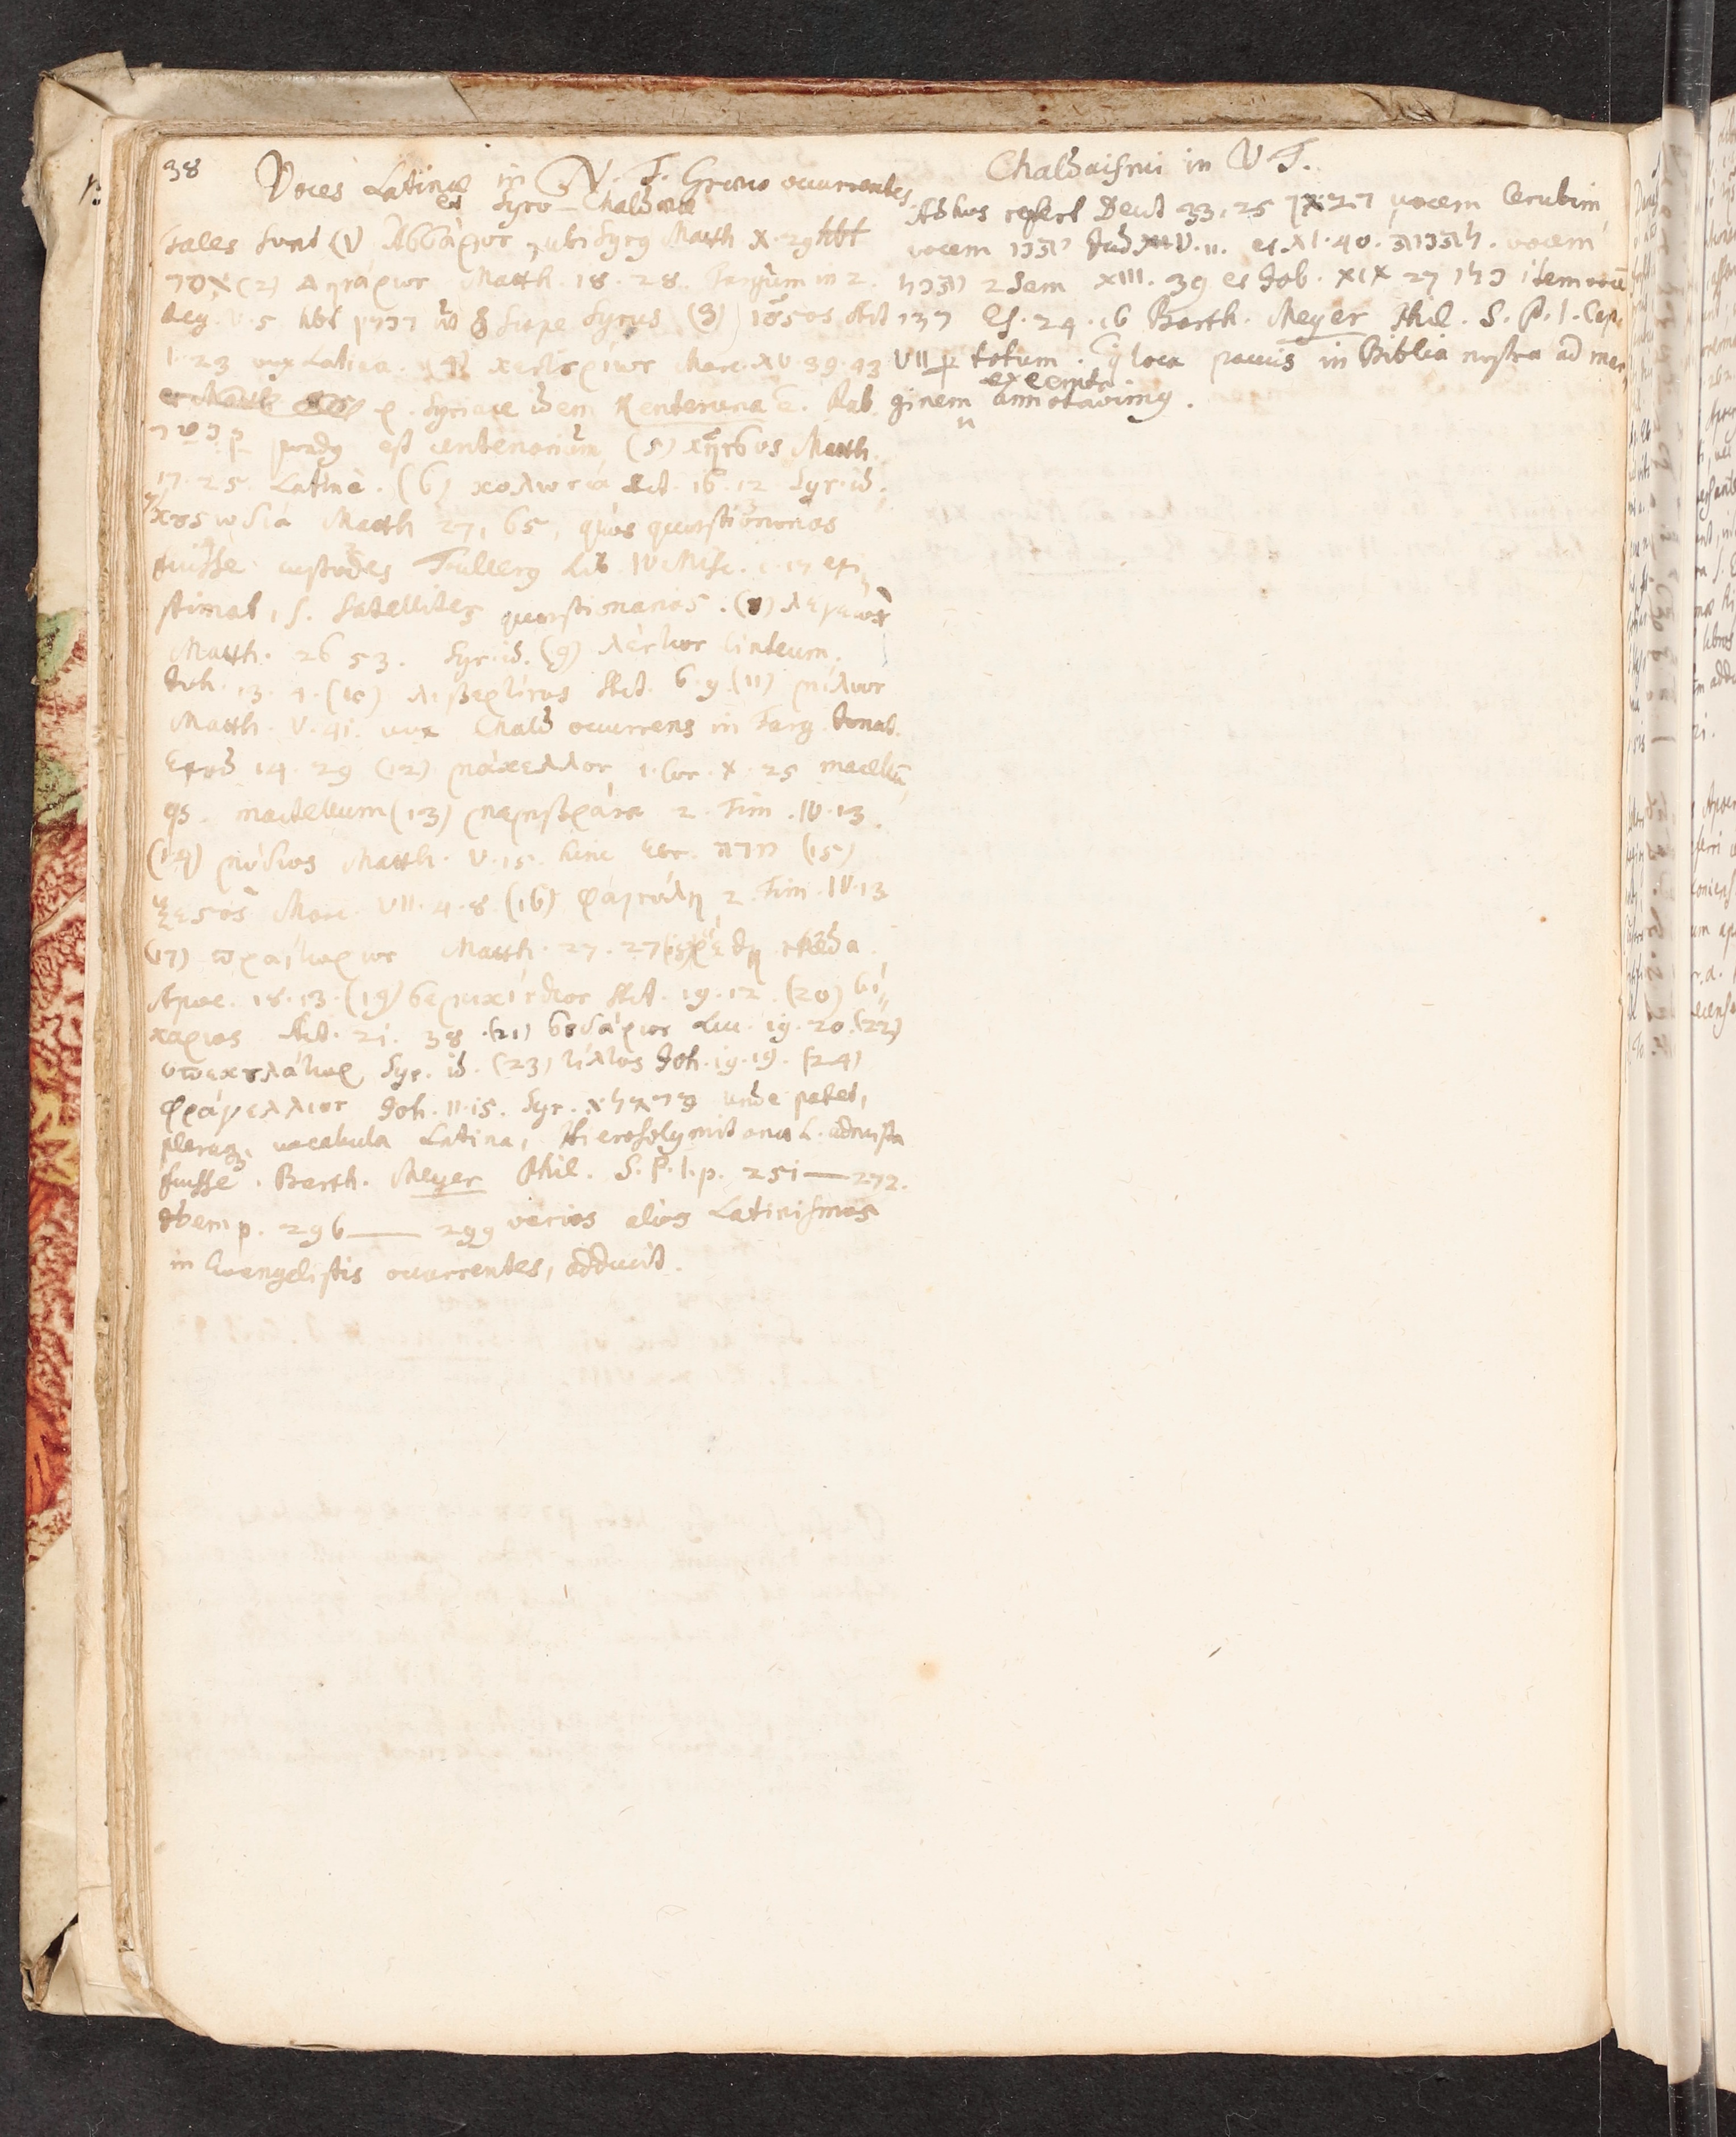 38
Voces Latinæ in N. T. Græco occurrentes
et Syro-Chaldææ
tales sunt (1) Ἀσσάριον, ubi Syrg Matth X. 29 hbt
אסר (2) Δηνάριον Matth. 18. 28. Targum in 2.
Reg. V. 5 hbt דינר sæpe Syrus (3) Ἰοῦστος Act
1. 23 vox Latina. (4) κεντυρίων Marc. XV. 39. 43
Syriace idem Kenteruna Rab.
est centenarium (5) κῆνσος Matth.
17. 25. Latinè. (6) κολωνία Act. 16. 12 Syr. id.
7) κουστωδία Matth 27, 65, quos quæstionarios
fuisse custodes Fullerg Lib IV Misc. c. 17 exi-
stimat, s. satellites quæstionarios. (8) λεγεών
Matth. 26 53. Syr. id. (9) λέντιον linteum,
Joh. 13. 4. (10) λιβερτῖνος Act. 6. 9. (11) μίλιον
Matth. V. 41. vox Chald occurrens in Targ. Jonat.
Exod 14. 29 (12) μάκελλον 1. Cor. X. 25 macellũ,
qs. mactellum (13) μεμβράνα 2. Tim. IV. 13.
(14) μόδιος Matth. V. 15. hinc Ebr. מדה (15)
ξεστὸς Marc. VII. 4. 8. (16) φαινόλη 2. Tim. IV. 13
(17) πραιτώριον Matth. 27. 27 (18) ῥέδη rheda
Apoc. 18. 13. (19) σεμικίνθιον Act. 19. 12. (20) σι-
κάριος Act. 21. 38. (21) σουδάριον Luc. 19. 20. (22)
σπεκουλάτωρ Syr. id. (23) τίτλος Joh. 19. 19. (24)
φραγέλλιον Joh. 11. 15. Syr. unde patet,
pleraq; vocabula Latina, Hierosolymitana L. admista
fuisse. Barth. Meyer Phil. S. P. I. p. 251—272.
Idem p. 296—299 varios alios Latinismos
in Evangelistis occurrentes, adducit.
Chaldaismi in V T.
Ad hos refert Deut 33, 25 vocem Cerubim,
vocem יתנו Jud V. 11. et XI. 40. לתנות. vocem
ותכל 2 Sam XIII. 39 et Job. XIX 27 כלו item vocẽ
רזי Es. 24. 16 Barth. Meyer Phil. S. P. I. Cap.
VII totum. loca paucis in Biblia nostra ad mar-
exceptis
ginem annotavimg.